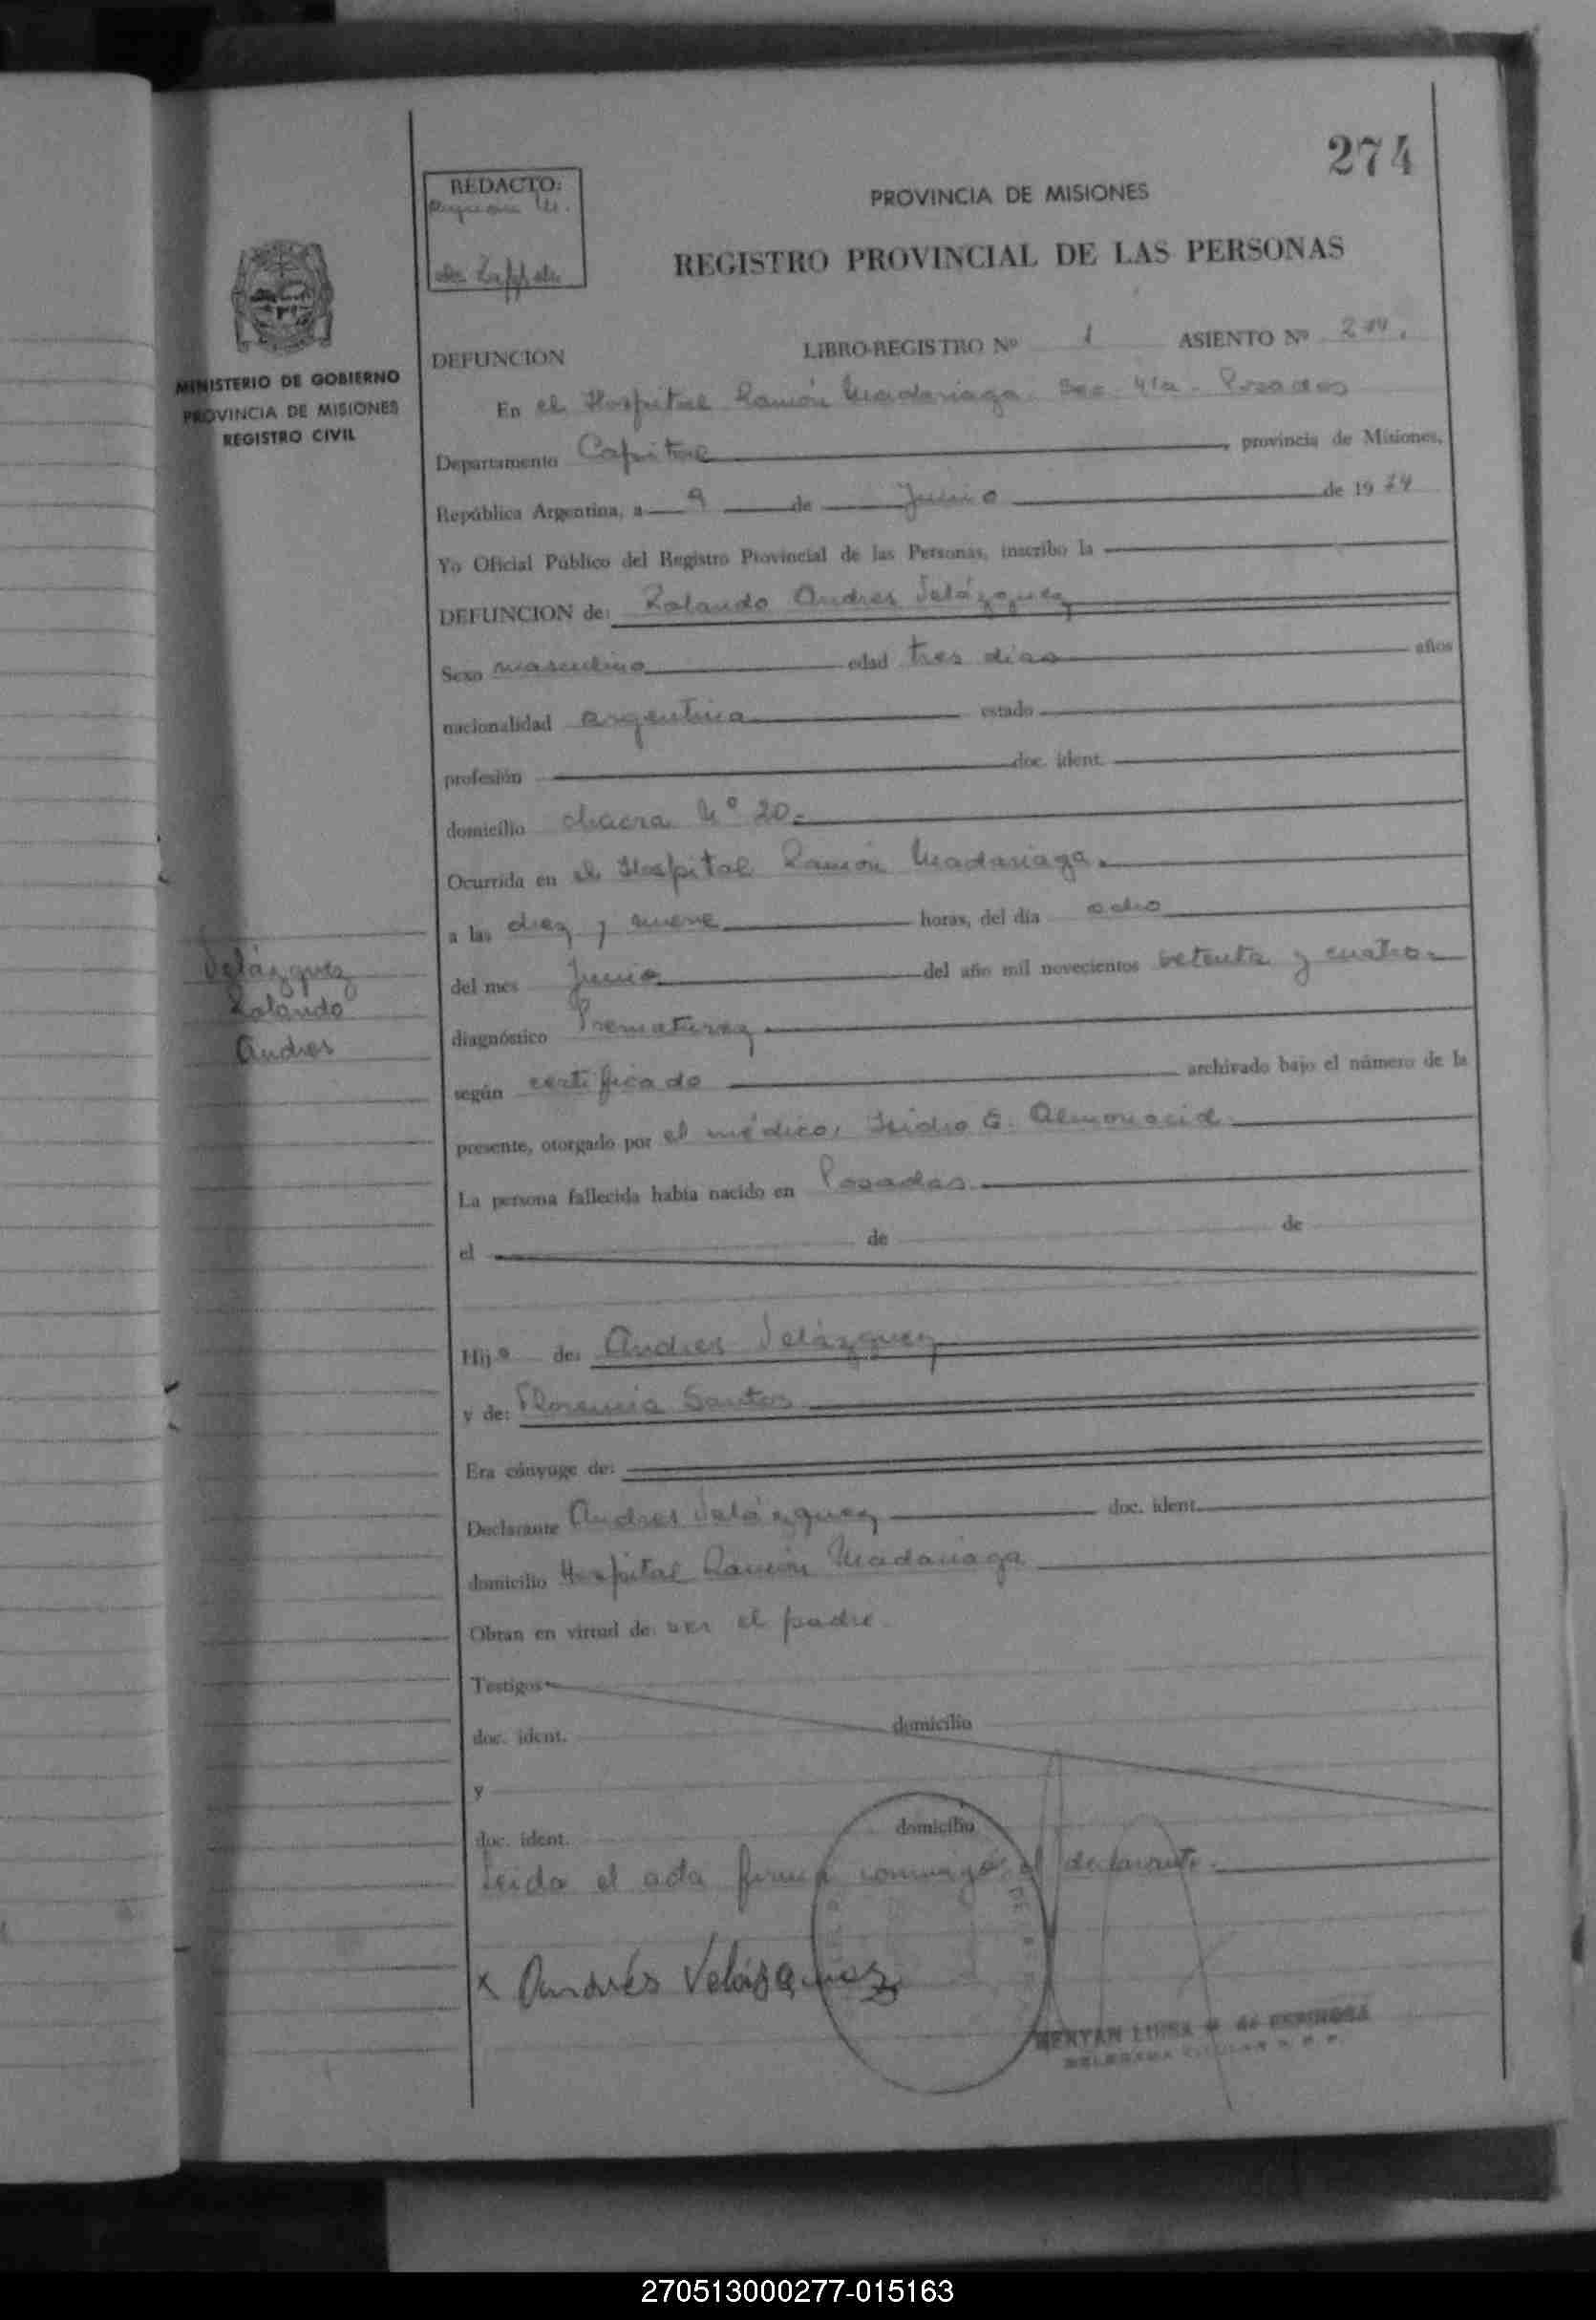 274
REDACTO:
PROVINCIA DE MISIONES
REGISTRO PROVINCIAL DE LAS PERSONAS
MINISTERIO DE GOBIERNO
PROVINCIA DE MISIONES
REGISTRO CIVIL
DEFUNCION LIBRO-REGISTRO Nº 1 ASIENTO Nº 274.
En el Hospital Ramón Madariaga. Sec. 4ta - Posadas
Departamento Capital, provincia de Misiones,
República Argentina, a 9 de Junio de 1974
Yo Oficial Público del Registro Provincial de las Personas, inscribo la
DEFUNCION de: Rolando Andres Velázquez
Sexo masculino edad tres dias años
nacionalidad argentina estado
profesión doc. ident.
domicilio chacra Nº 20.
Ocurrida en el Hospital Ramón Madariaga.
a las diez y nueve horas, del día ocho
del mes Junio del año mil novecientos setenta y cuatro
diagnóstico Prematurez
según certificado archivado bajo el número de la
presente, otorgado por el médico, Isidro G. Almonacid
La persona fallecida había nacido en Posadas
el de de
Velázquez
Rolando
Andres
Hijo de: Andres Velázquez
y de: Florencia Santos
Era cónyuge de:
Declarante Andres Velázquez doc. ident.
domicilio Hospital Ramón Madariaga
Obran en virtud de ser el padre
Testigos
doc. ident. domicilio
y
doc. ident. domicilio
Leida el acta firma conmigo el declarante.
x Andrés Velázquez
LUISA de ESPINOSA
270513000277-015163